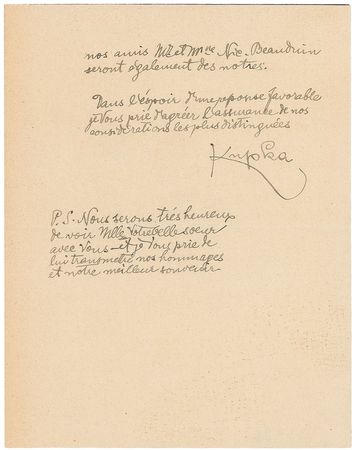 nos amis Mr et Mme Nic. Beauduin
seront également des notres.
Dans l'éspoir d'une reponse favorable
je Vous prie d'agréer l'assurance de nos
considerations les plus distinguées
Kupka
P.S. Nous serons trés heureux
de voir Mlle Votre belle soeur
avec Vous – et je Vous prie de
lui transmetre nos hommages
et notre meilleur souvenir